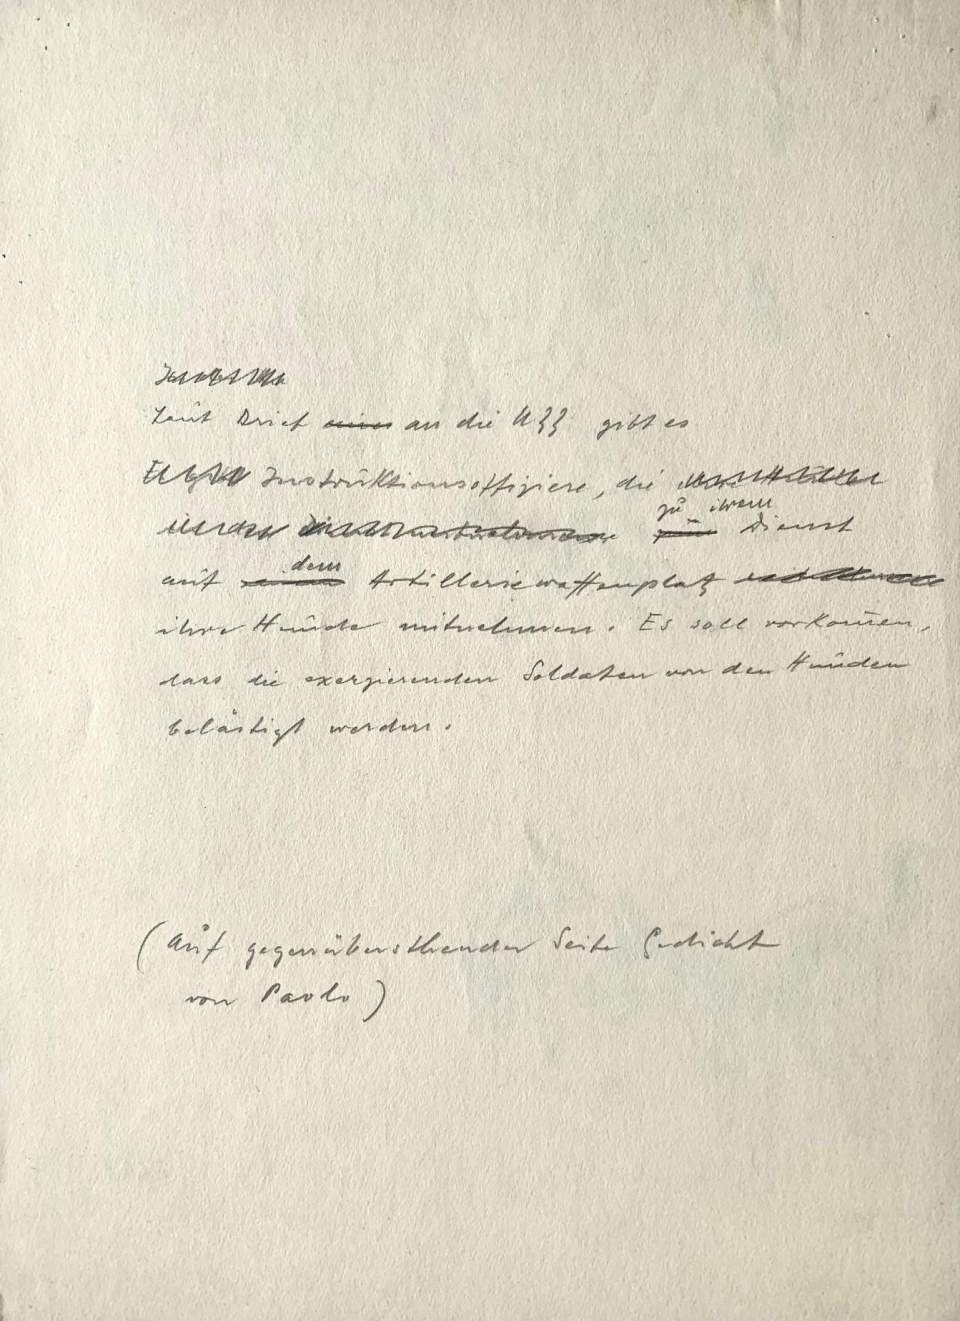 Laut Brief an die NZZ gibt es
Instruktionsoffiziere, die
zu ihrem
Dienst
dem
auf Artilleriewaffenplatz
ihre Hunde mitnehmen. Es soll vorkom̄en,
dass die exerzierenden Soldaten von den Hunden
belästigt werden.
(Auf gegenüberstehender Seite Gedicht
von Paolo)